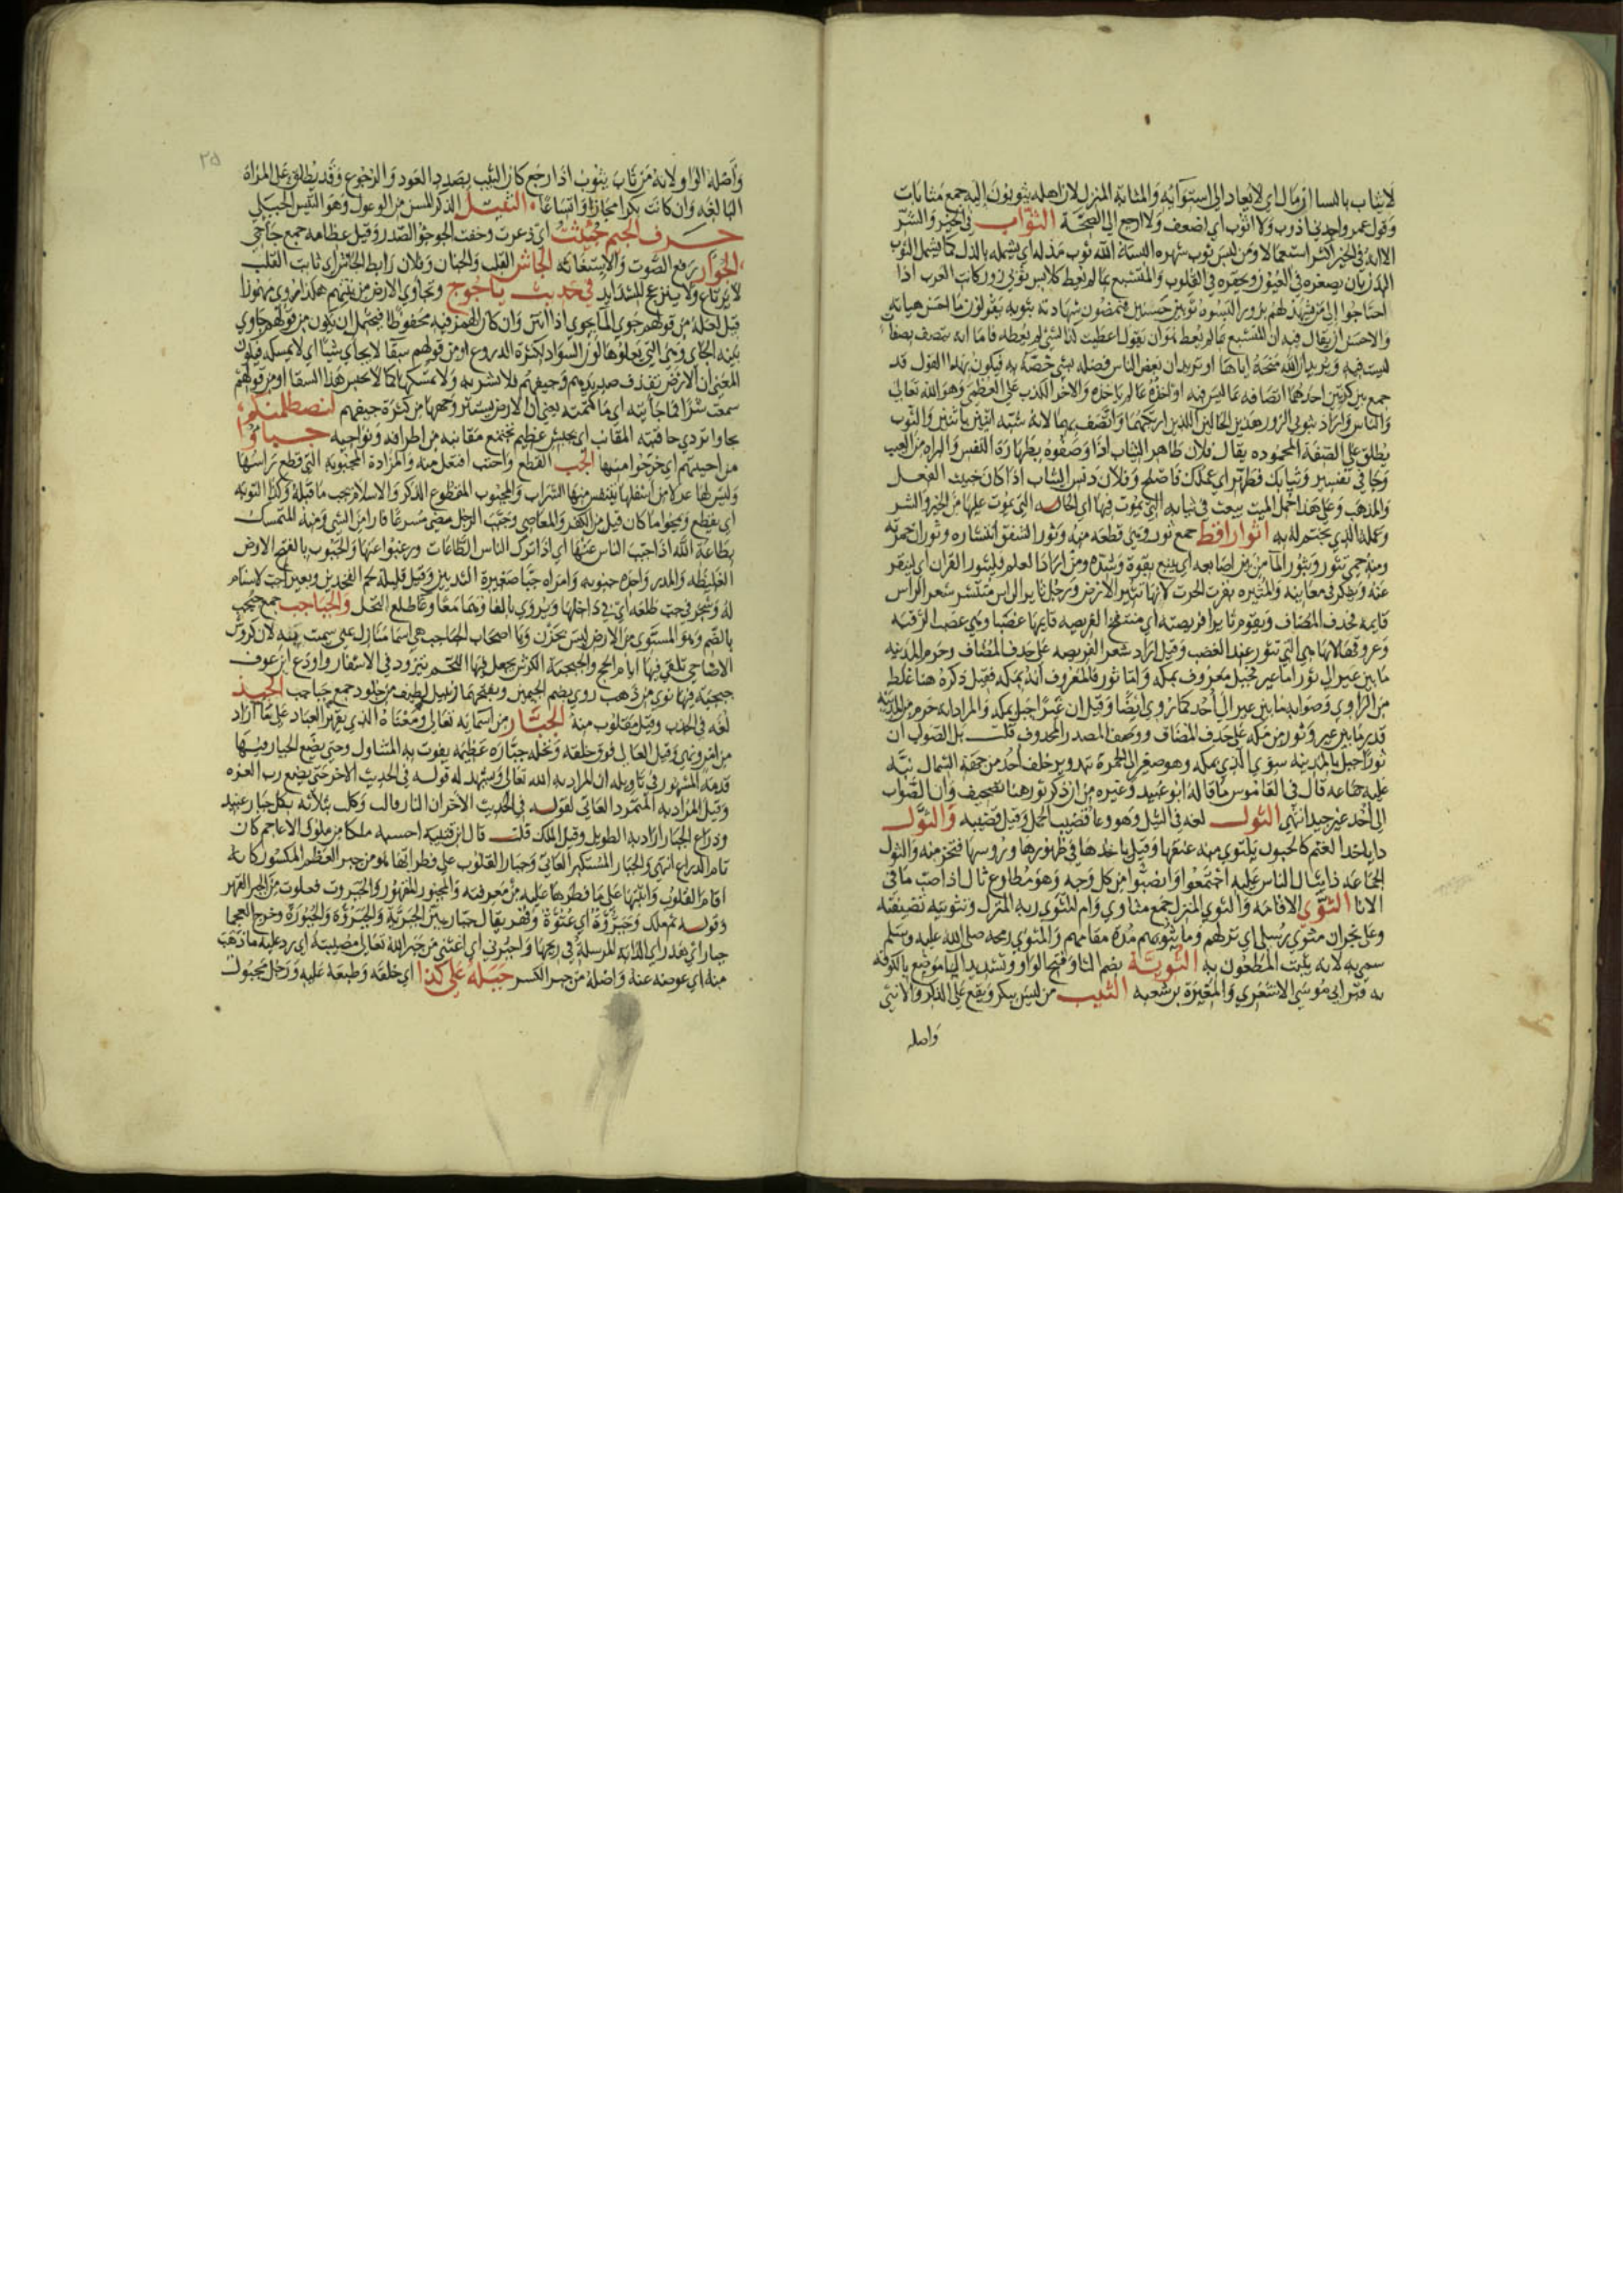 لا يثاب بالنسا ان مال اي لا يعاد الى استوائه والمثابة المنزل لان اهله يثوبون اليه جمع مثابات
وقول عمرو اجدني اذوب ولا اثوب اي اضعف ولا ارجع الى الصحة الثواب في الخير والشر
الا انه في الخير اكثر استعمالا ومن لبس ثوب شهرة البسه الله ثوب مذلة اي يشمله بالذل كما يشمل الثوب
البدن بان يصغره في العيون ويحقره في القلوب والمتشبع بما لم يعط كلابس ثوبي زور كانت العرب اذا
احتاجوا الى من يشهد لهم بزور البسوه ثوبين حسنين فيمضون شهادته بثوبيه يقولون ما احسن هيأته
والاحسن ان يقال فيه ان المتشبع بما لم يعط هو ان يقول اعطيت كذا لشي لم يعطه فاما انه يتصف بصفات
ليست فيه ويريد ان الله منحه اياها او يريد ان بعض الناس فضله بشي خصه به فيكون بهذا القول قد
جمع بين كذبين احدهما اتصافه بما ليس فيه او اخذه ما لم ياخذه والاخر الكذب على المعطي وهو الله تعالى
والناس واراد بثوبي الزور هذين الحالين اللذين ارتكبهما واتصف بهما لانه شبه اثنين باثنين والثوب
يطلق على الصفة المحمودة يقال فلان طاهر الثياب اذا وصفوه بطهارة النفس والبراة من العيب
وجا في تفسير وثيابك فطهر اي عملك فاصلح وفلان دنس الثياب اذا كان خبيث الفعل
والمذهب وعلى هذا حمل الميت يبعث في ثيابه التي يموت فيها اي الحالة التي يموت عليها من الخير والشر
وعمله الذي يختم له به اثوار اقط جمع ثور وهي قطعة منه وثور الشفق انتشاره وثوران حمرته
ومنه حمى تثور ويثور الما من بين اصابعه اي ينبع بقوة وشدة ومن اراد العلم فليثور القران اي لينقر
عنه ويفكر في معانيه والمثيرة بقرت الحرث لانها تثير الارض ورجل ثاير الراس منتشر شعر الراس
قايمه فحذف المضاف ويقوم ثايرا فريصته اي منتفخ الفريصة قايمها غضبا وهي عصب الرقبة
وعروقها لانها هي التي تثور عند الغضب وقيل اراد شعر الفريصة على حذف المضاف وحرم المدينة
ما بين عير الى ثور اما عير فجبل معروف بمكة واما ثور فالمعروف انه بمكة فقيل ذكره هنا غلط
من الراوي وصوابه ما بين عير الى احد كما روي ايضا وقيل ان عيرا جبل بمكة والمراد انه حرم من المدينة
قدر ما بين عير وثور من مكة على حذف المضاف ووصف المصدر المحذوف قلت بل الصواب ان
ثورا جبل بالمدينة سوى الذي بمكة وهو صغير الى الحمرة بتدوير خلف احد من جهة الشمال نبه
عليه جماعة قال في القاموس ما قاله ابو عبيد وغيره من ان ذكر ثور هنا تصحيف وان الصواب
الى احد غير جيد انتهى الثول لغة في الثيل وهو وعا قضيب الجمل وقيل قضيبه والثول
دا ياخذ الغنم كالجنون يلتوي منه عنقها وقيل ياخذها في ظهورها وروسها فتخر منه والثول
الجماعة ذا ينثال الناس عليه اجتمعوا وانصبوا من كل وجه وهو مطاوع ثال اذا صب ما في
الانا الثوي الاقامة والثوي المنزل جمع مثاوي وام المثوى ربة المنزل وتثويته تضييفه
وعلى نجران مثوى رسلي اي نزلهم وما يثويهم مدة مقامهم والمثوي رمحه صلى الله عليه وسلم
سمي به لانه يثبت المطعون به الثوية بضم الثا وفتح الواو وتشديد اليا موضع بالكوفة
به قبر ابي موسى الاشعري والمغيرة بن شعبة الثيب من ليس ببكر ويقع على الذكر والانثى
واصله
٢٥
واصله الواو لانه من ثاب يثوب اذا رجع كان الثيب بصدد العود والرجوع وقد يطلق على المراة
البالغة وان كانت بكرا مجازا واتساعا الثيتل الذكر المسن من الوعول وهو التيس الجبلي
حرف الجيم جئثت اي ذعرت وخفت الجوجو الصدر وقيل عظامه جمع جاجي
الجوار رفع الصوت والاستغاثة الجاش القلب والجنان وفلان رابط الجاش اي ثابت القلب
لا يرتاع ولا ينزعج للشدايد في حديث ياجوج وتجاوى الارض من نتنهم هكذا روي مهموزا
قيل لعله من قولهم جوى الما يجوى اذا انتن وان كان الهمز فيه محفوظا فيحتمل ان يكون من قولهم جاوي
بينه الجاي وهي التي يعلوها لون السواد لكثرة الدروع او من قولهم سقا لا يجاى شيا اي لا يمسكه فيكون
المعنى ان الارض تقذف صديدهم وجيفهم فلا تشربه ولا تمسكها كما لا يحبس هذا السقا او من قولهم
سمعت سرا فما جايته اي ما كتمته يعني ان الارض يستتر وجهها من كثرة جيفهم
بجاوا تردي حافتيه المقانب اي بجيش عظيم تجتمع مقانبه من اطرافه ونواحيه
من اخبيتهم اي خرجوا منها الجب القطع واجتب افتعل منه والمزادة المجبوبة التي قطع راسها
وليس لها عزلا من اسفلها يتنفس منها الشراب والمجبوب المقطوع الذكر والاسلام يجب ما قبله وكذا التوبة
اي يقطع ويمحوا ما كان قبل من الكفر والمعاصي وجبب الرجل مضى مسرعا فارا من الشي ومنه المتمسك
بطاعة الله اذا جبب الناس عنها اي اذا ترك الناس الطاعات ورغبوا عنها والجبوب بالفتح الارض
الغليظة والمدر واحده جبوبة وامراة جبا صغيرة الثديين وقيل قليلة لحم الفخدين وبعير اجب لا سنام
له وسحر في جب طلعة اي في داخلها ويروى بالفا وهما معا وعا طلع النخل والجباجب جمع جبجب
بالضم وهو المستوى من الارض ليس بحزن ويا اصحاب الجباجب هي اسما منازل بمنى سميت به لان كروش
الاضاحي تلقى فيها ايام الحج والجبجبة الكرش يجعل فيها اللحم يتزود في الاسفار واودع ابن عوف
جبجبة فيها نوى من ذهب روي بضم الجيمين وبفتحهما زنبيل لطيف من جلود جمع جباجب الجبذ
لغة في الجذب وقيل مقلوب منه الجبار من اسمايه تعالى ومعناه الذي يقهر العباد على ما اراد
من امر ونهي وقيل العالي فوق خلقه ونخله جبارة عظيمة يفوت به المتناول وحتى يضع الجبار فيها
قدمه المشهور في تاويله ان المراد به الله تعالى ويشهد له قوله في الحديث الاخر حتى يضع رب العزة
وقيل المراد به المتمرد العاتي لقوله في الحديث الاخر ان النار قالت وكلت بثلاثة بكل جبار عنيد
وذراع الجبار اراد به الطويل وقيل الملك قلت قال ابن قتيبة احسبه ملكا من ملوك الاعاجم كان
تام الذراع انتهى والجبار المستكبر العاتي وجبار القلوب على فطراتها هو من جبر العظم المكسور كانه
اقام القلوب واثبتها على ما فطرها عليه من معرفته والمجبور المقهور والجبروت فعلوت من الجبر القهر
وقوله ثم ملك وجبروة اي عتوة وقهر يقال جبار بين الجبرية والجبروة والجبورة وجرح العجما
جبار اي هدر اي الدابة المرسلة في رعيها واجبرني اي اغنني من جبر الله تعالى مصيبته اي رد عليه ما ذهب
منه اي عوضه عنه واصله من جبر الكسر جبله على كذا اي خلقه وطبعه عليه ورجل مجبول